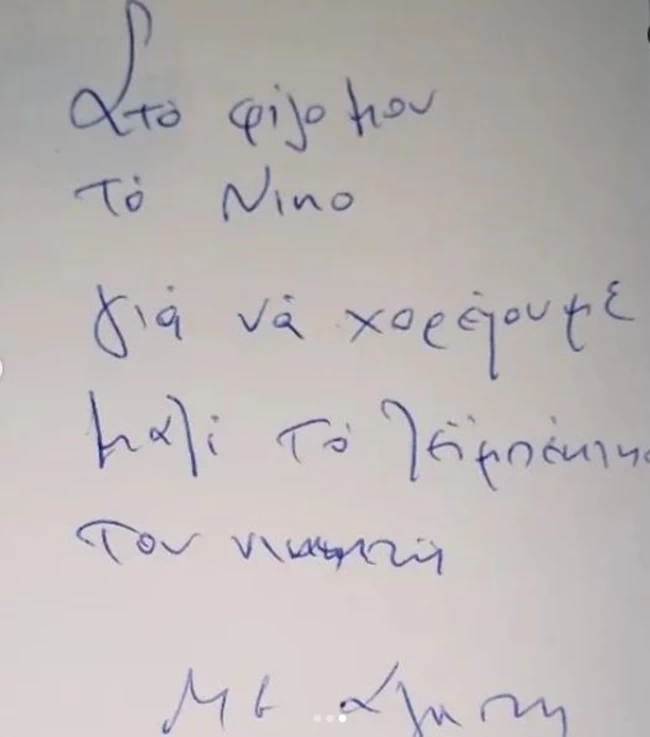 Στο φίλο μου
Τό Νίκο
γιά νά χορέψουμε
μαζί τό ζεϊμπέκικο
του νικητή
Με αγάπη